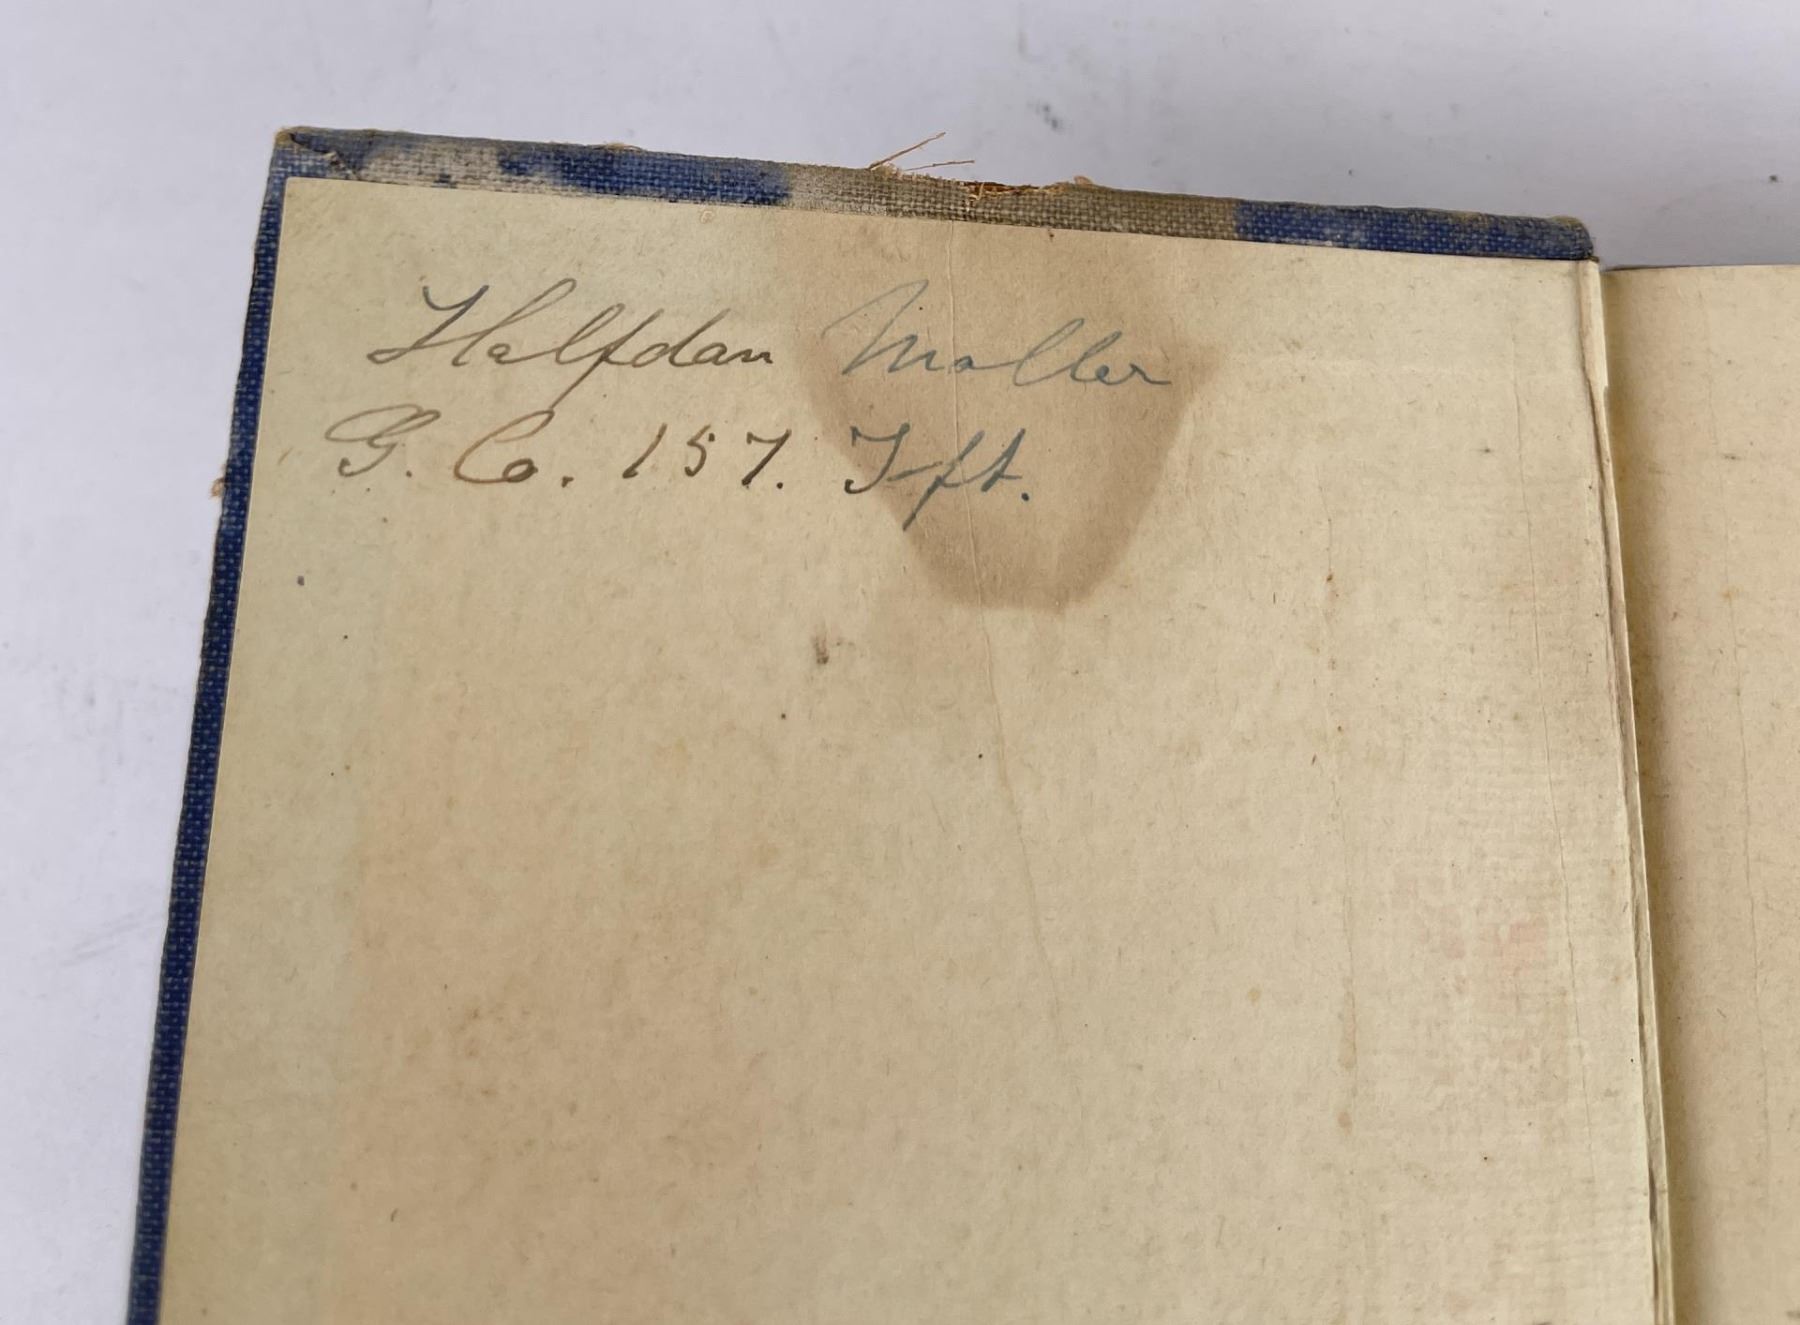 Halfdan Moller
G. Co. 157. Ift.